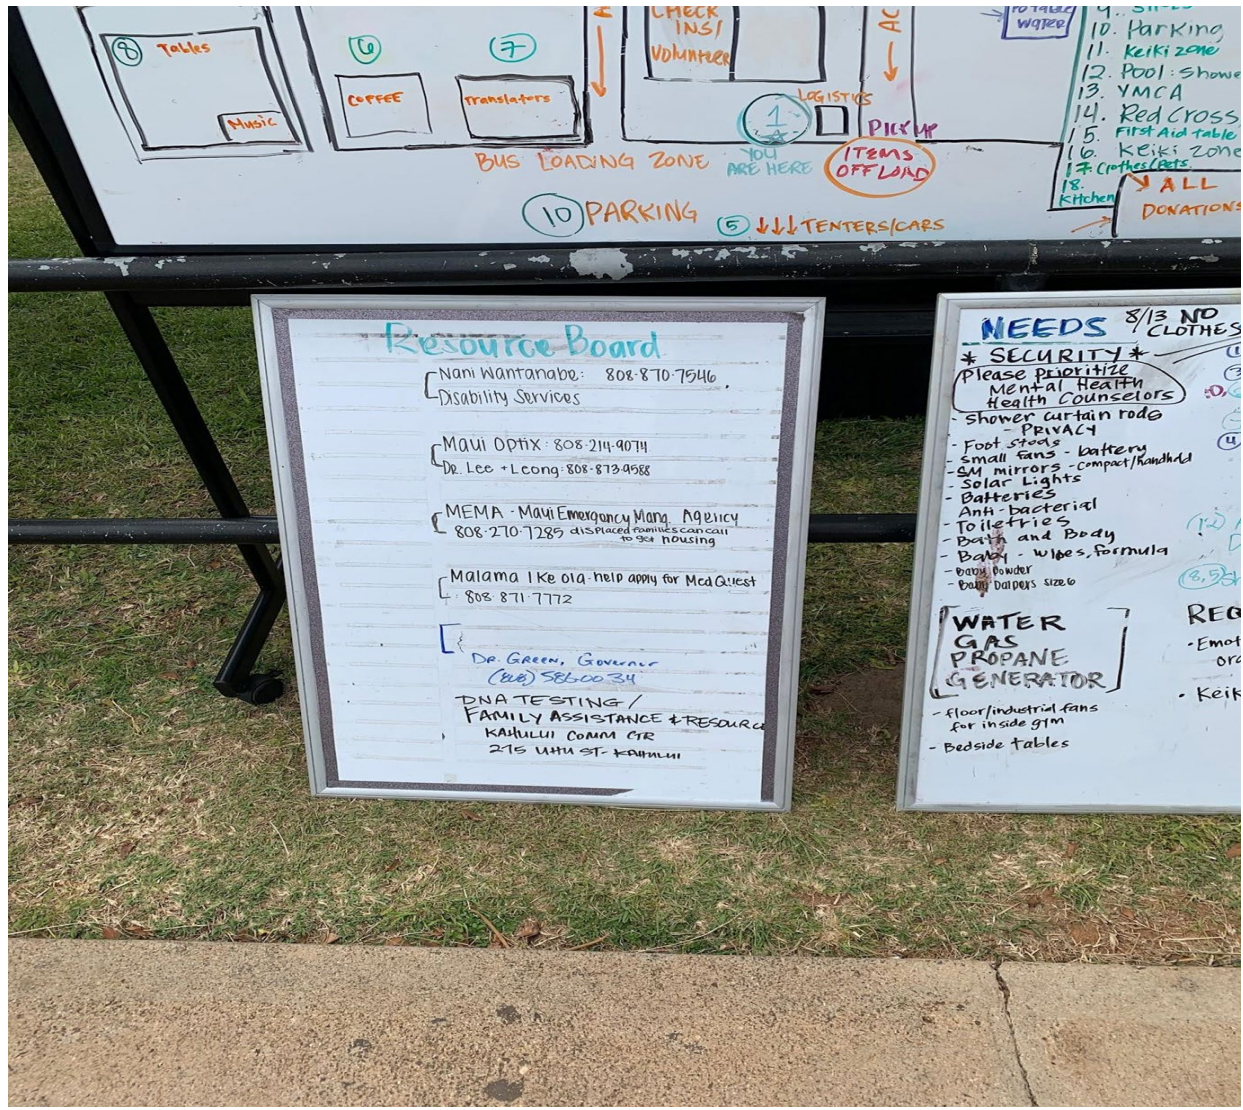 8 Tables
Music
6
COFFEE
7
Translators
CHECK
INS/
Volunteer
LOGISTICS
1
YOU
ARE HERE
PICK UP
ITEMS
OFF LOAD
BUS LOADING ZONE
10 PARKING
5 ↓↓↓ TENTERS/CARS
WATER
10. Parking
11. Keiki zone
12. Pool: Showe
13. YMCA
14. Red Cross
15. First Aid table
16. Keiki zone
17. Clothes/Pets
18. Kitchen
ALL
DONATIONS
Resource Board
Nani Wantanabe: 808-870-7546
Disability Services
Maui Optix: 808-214-9074
Dr. Lee + Leong: 808-873-9588
MEMA - Maui Emergency Mang. Agency
808-270-7285 displaced families can call
to get housing
Malama I Ke ola - help apply for MedQuest
808-871-7772
DR. GREEN, Governor
5860034
DNA TESTING/
FAMILY ASSISTANCE & RESOURCE
KAHULUI COMM CTR
275 UHU ST- KAHULUI
NEEDS 8/13 NO
CLOTHES
* SECURITY *
Please prioritize
Mental Health
Health Counselors
Shower curtain rods
- PRIVACY
- Foot stools
- Small fans - battery
- SM mirrors - compact/handheld
- Solar Lights
- Batteries
Anti-bacterial
- Toiletries
- Bath and Body
- Baby - wipes, formula
- Baby Powder
- Baby Daipers size 6
WATER
GAS
PROPANE
GENERATOR
- floor/industrial fans
for inside gym
- Bedside tables
REQ
• Emot
ora
• Keik